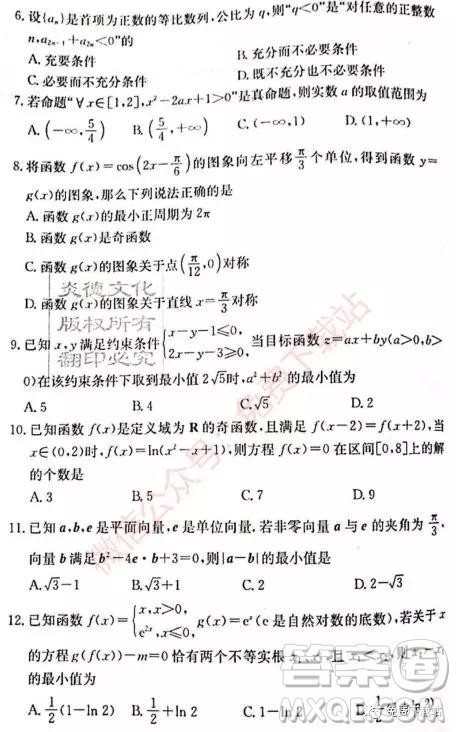 6. 设{aₙ}是首项为正数的等比数列,公比为 q,则“q<0”是“对任意的正整数
n,a₂ₙ₋₁+a₂ₙ<0”的
A. 充要条件 B. 充分而不必要条件
C. 必要而不充分条件 D. 既不充分也不必要条件
7. 若命题“∀x∈[1,2],x²-2ax+1>0”是真命题,则实数 a 的取值范围为
A. (-∞,5/4) B. (5/4,+∞) C. (-∞,1) D. (1,+∞)
8. 将函数 f(x)=cos(2x-π/6)的图象向左平移π/3个单位,得到函数 y=
g(x)的图象,那么下列说法正确的是
A. 函数 g(x)的最小正周期为 2π
B. 函数 g(x)是奇函数
C. 函数 g(x)的图象关于点(π/12,0)对称
D. 函数 g(x)的图象关于直线 x=π/3对称
炎德文化
版权所有
翻印必究
9. 已知 x,y 满足约束条件{x-y-1≤0, 2x-y-3≥0, 当目标函数 z=ax+by(a>0,b>
0)在该约束条件下取到最小值 2√5时,a²+b² 的最小值为
A. 5 B. 4 C. √5 D. 2
10. 已知函数 f(x)是定义域为 R 的奇函数,且满足 f(x-2)=f(x+2),当
x∈(0,2)时,f(x)=ln(x²-x+1),则方程 f(x)=0 在区间[0,8]上的解
的个数是
A. 3 B. 5 C. 7 D. 9
11. 已知 a,b,e 是平面向量,e 是单位向量. 若非零向量 a 与 e 的夹角为π/3,
向量 b 满足 b²-4e·b+3=0,则|a-b|的最小值是
A. √3-1 B. √3+1 C. 2 D. 2-√3
12. 已知函数 f(x)={x,x>0, e²ˣ,x≤0, g(x)=eˣ(e 是自然对数的底数),若关于 x
的方程 g(f(x))-m=0 恰有两个不等实根 x₁、x₂,且 x₁<x₂,则
的最小值为
A. 1/2(1-ln 2) B. 1/2+ln 2 C. 1-ln 2 D.
微信公众号:免费下载站
答案圈
MXQE.COM